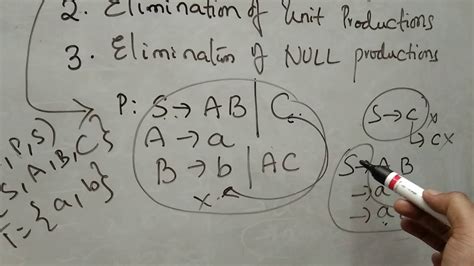 2. Elimination of Unit Productions
3. Elimination of NULL productions
P: S → AB | C
A → a
B → b | AC
X
, P, S)
S, A, B, C}
T = {a, b}
S → C x
↳ CX
S → AB
→ a
→ a